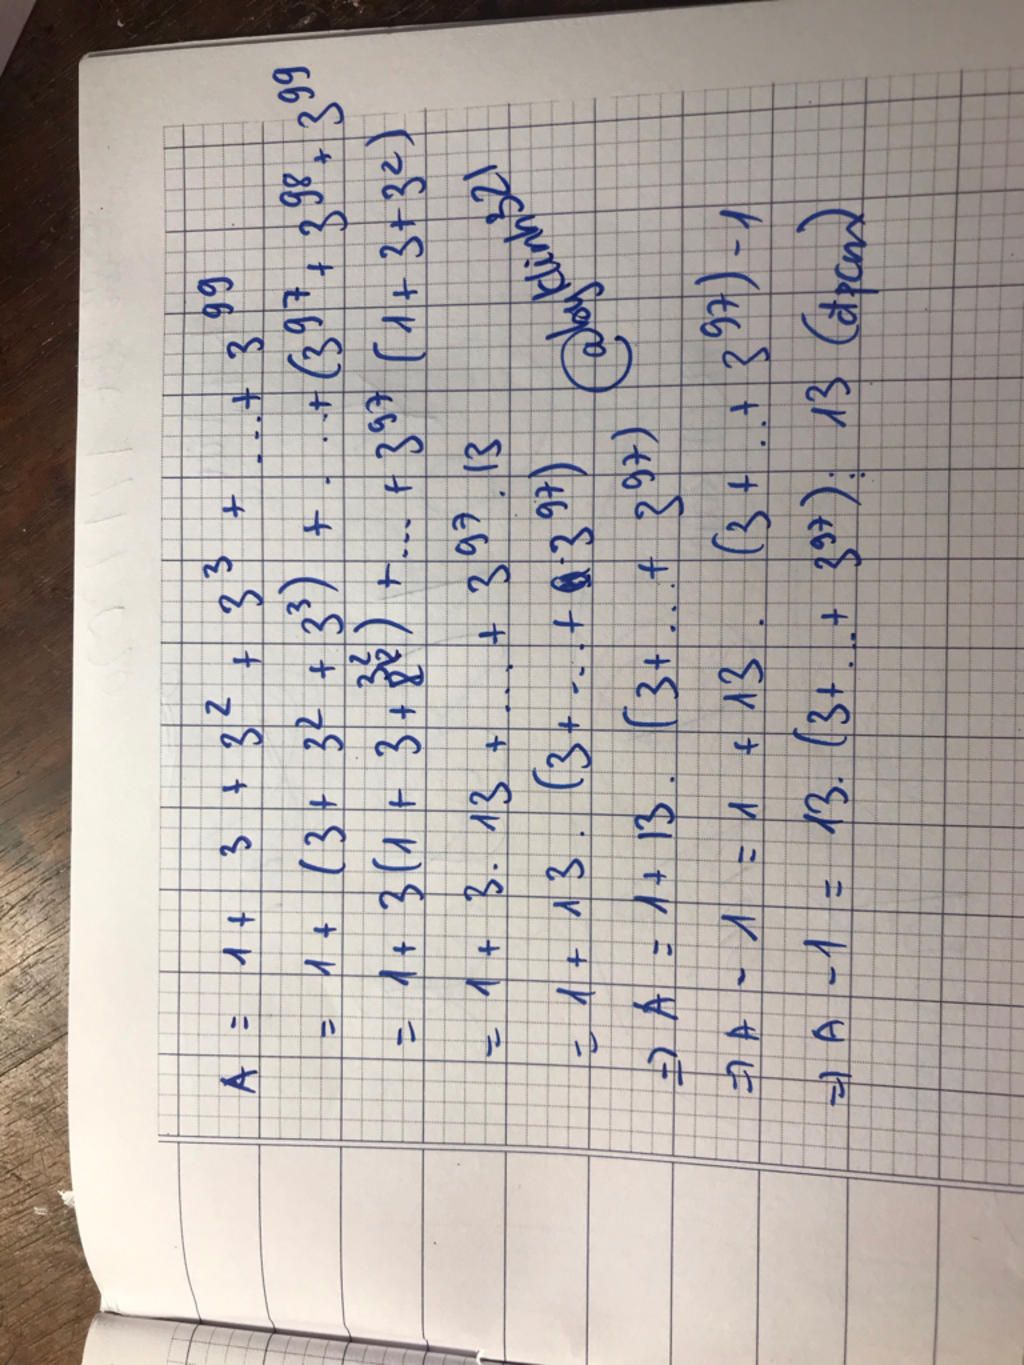 A = 1 + 3 + 3² + 3³ + ...+ 3⁹⁹
= 1 + (3 + 3² + 3³) + ...+ (3⁹⁷ + 3⁹⁸ + 3⁹⁹
= 1 + 3(1 + 3 + 3²) + .... + 3⁹⁷ (1 + 3 + 3²)
= 1 + 3. 13 + ... + 3⁹⁷ . 13
= 1 + 13 . (3 + ...+ 3⁹⁷)
=> A = 1 + 13 . (3 + ...+ 3⁹⁷)
=> A - 1 = 1 + 13 . (3 + ..+ 3⁹⁷) - 1
=> A - 1 = 13. (3 + ...+ 3⁹⁷) ⋮ 13 (đpcm)